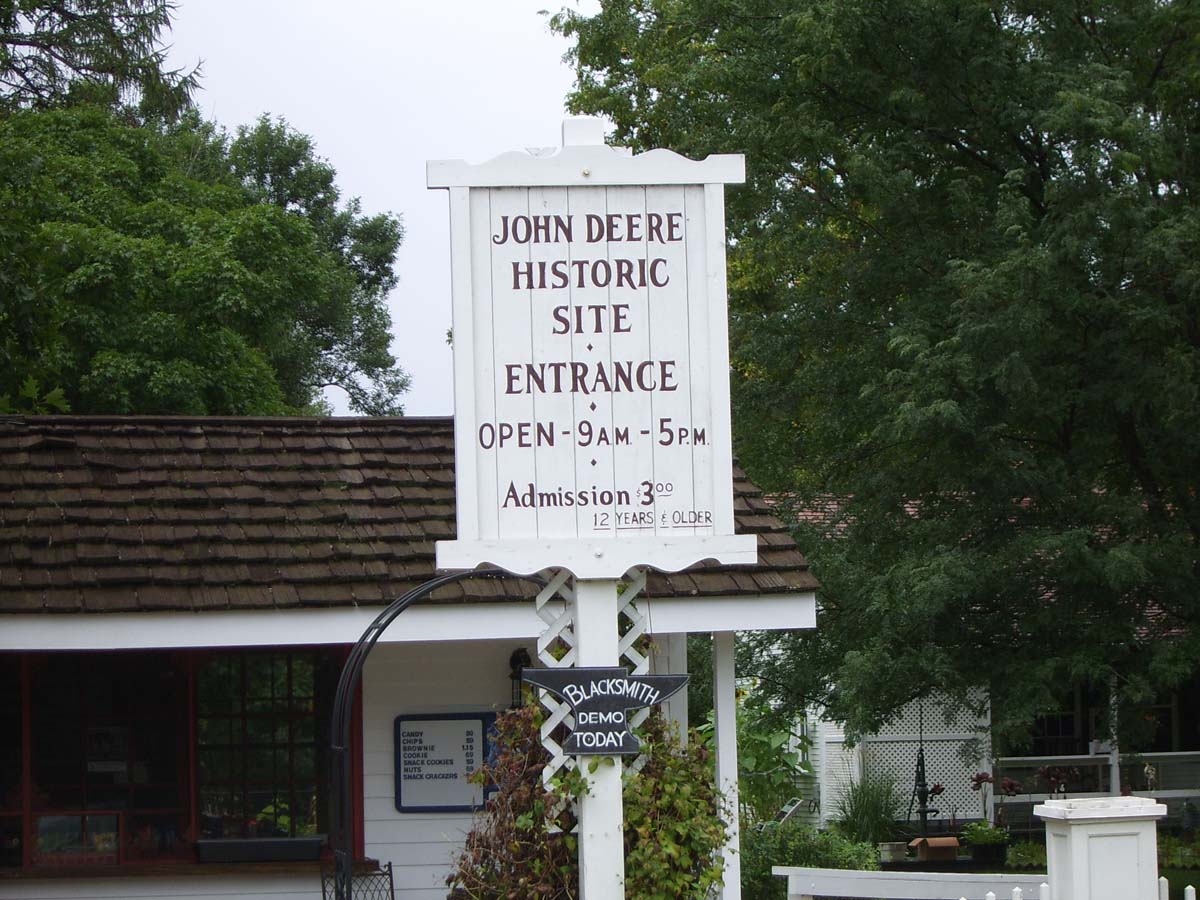 JOHN DEERE
HISTORIC
SITE
ENTRANCE
OPEN - 9 A.M. - 5 P.M.
Admission $3.00
12 YEARS & OLDER
BLACKSMITH
DEMO
TODAY
CANDY
CHIPS
BROWNIE 1.15
COOKIE
SNACK COOKIES
NUTS
SNACK CRACKERS